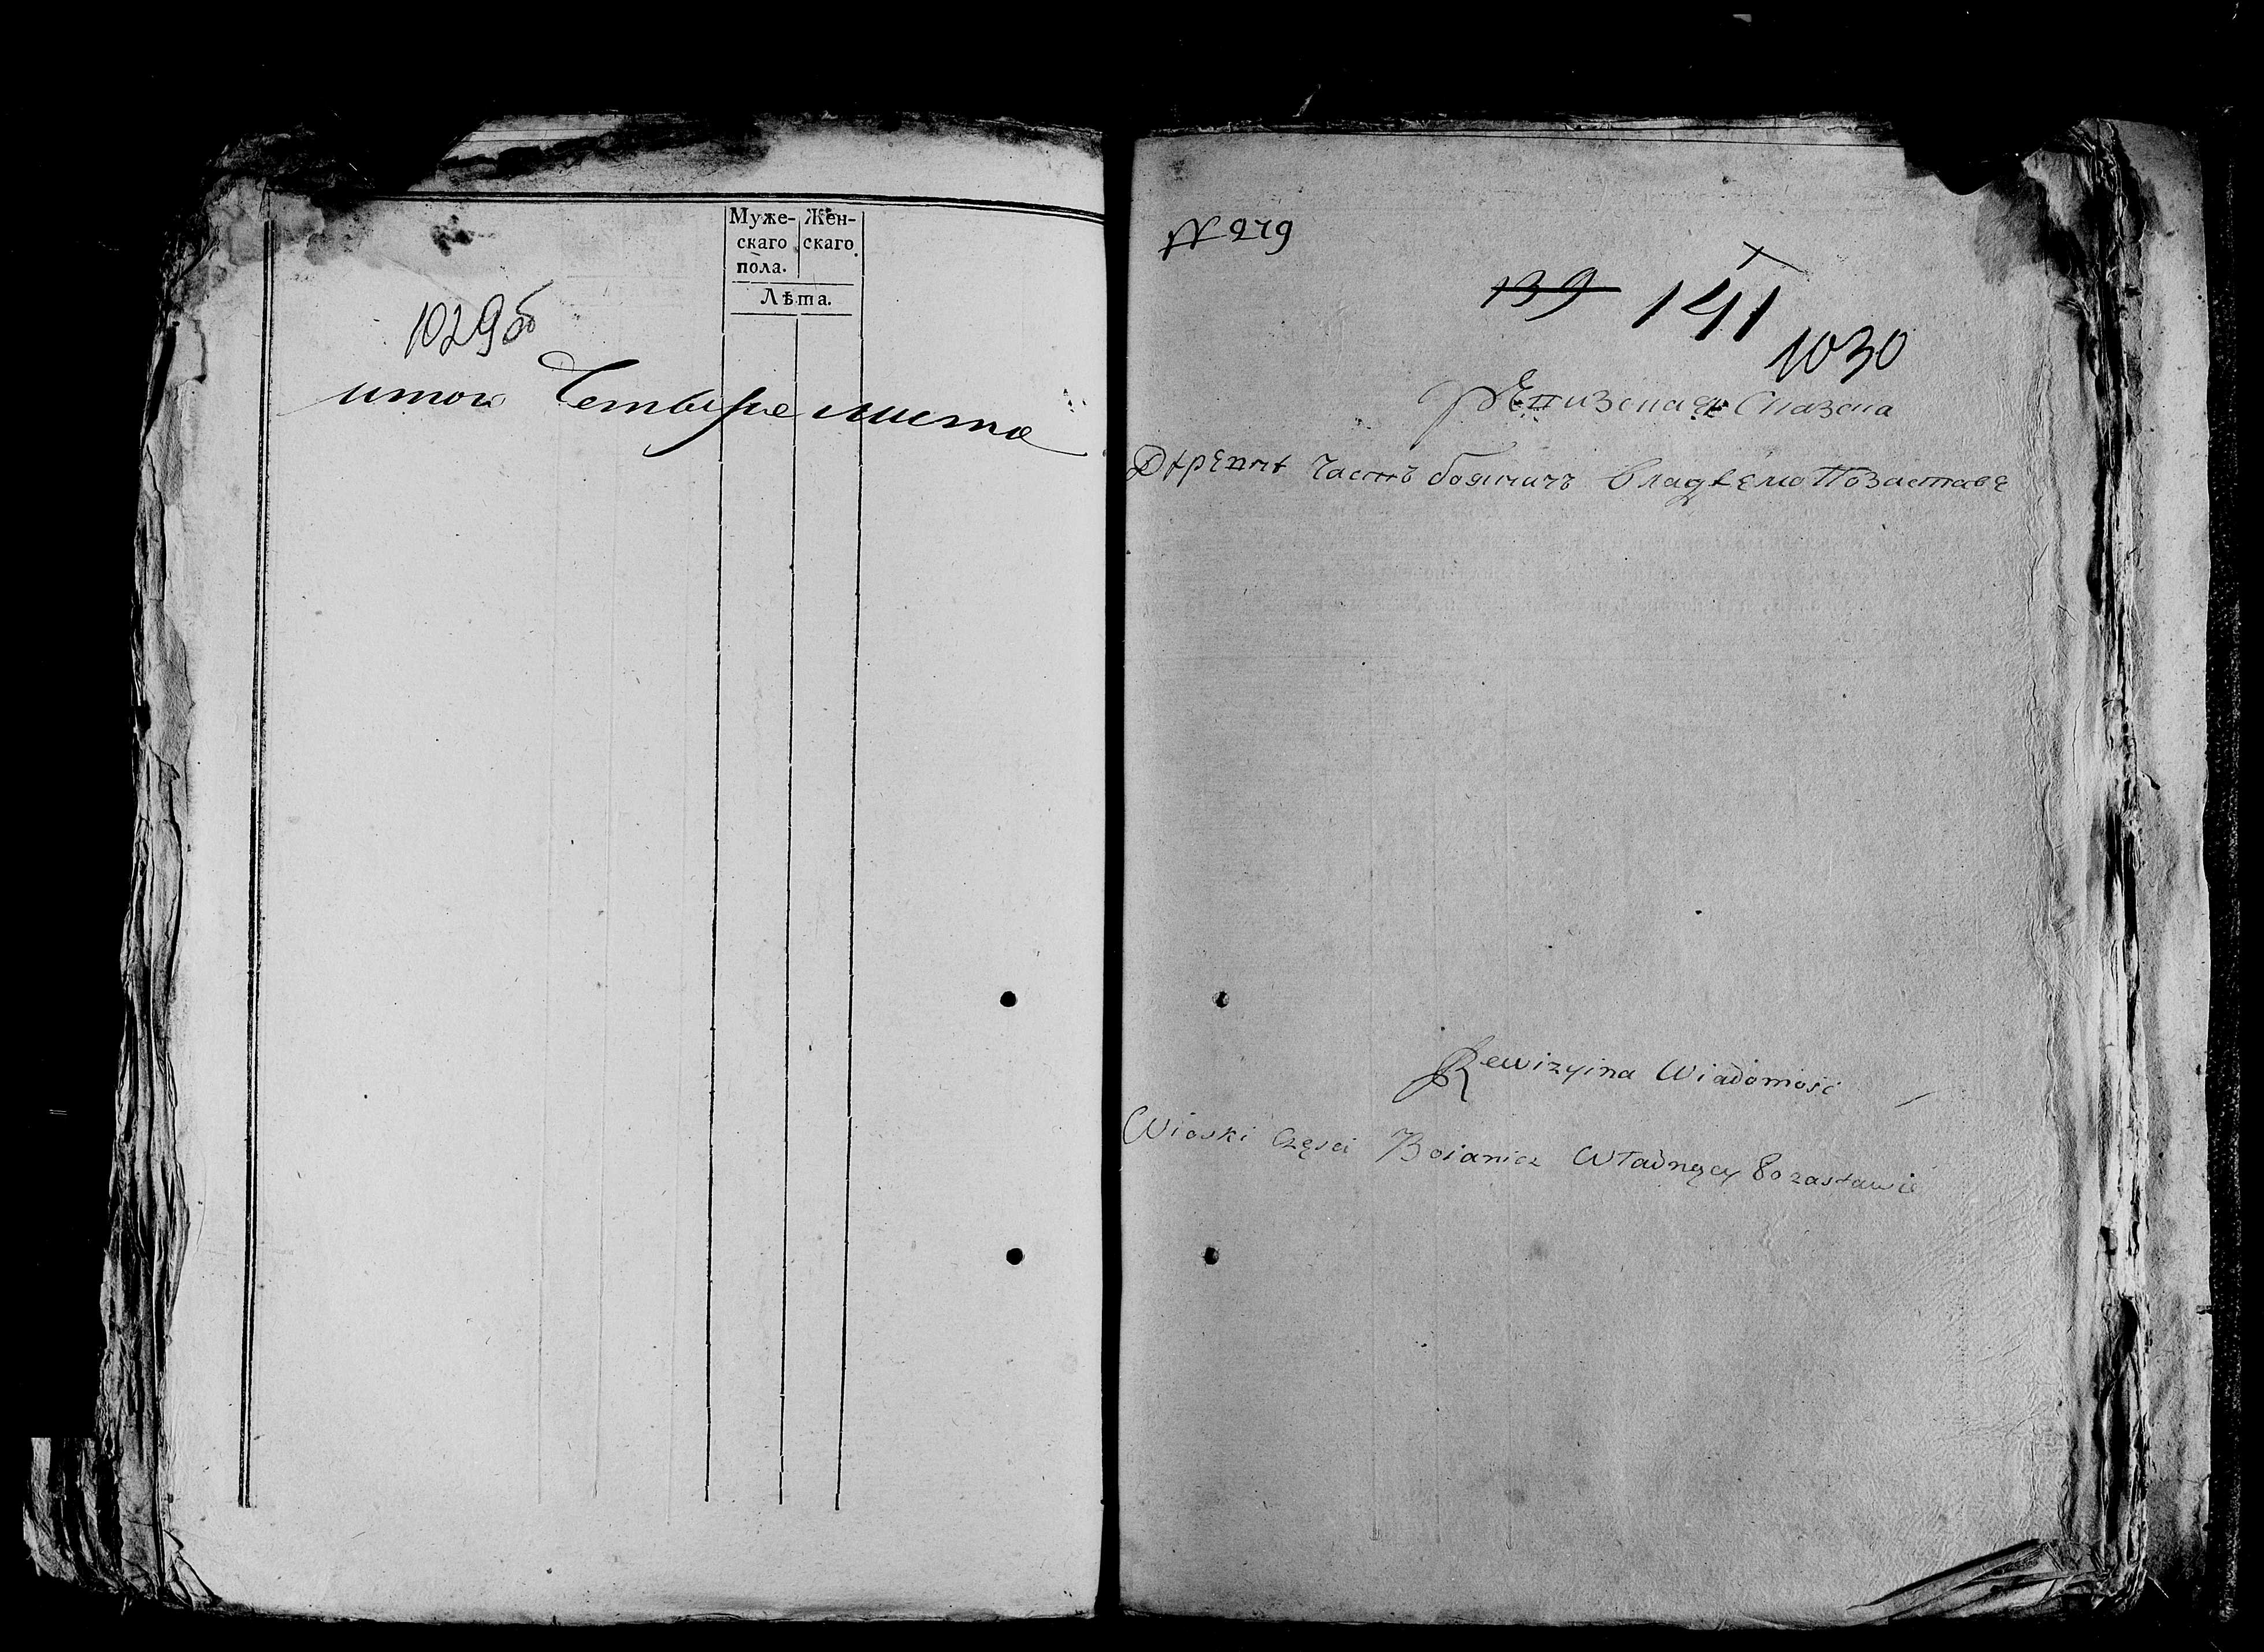 Муже- Жен-
скаго скаго
пола.
Лѣта.
1029б
итого Четыре листа
N 279
139 141
1030
Ревизская Сказка
Дѣревнѣ Частъ бояничъ Владѣемо По Заставе
Rewizyina Wiadomość
Wioski Części Boianicz Władnący Po zastawie